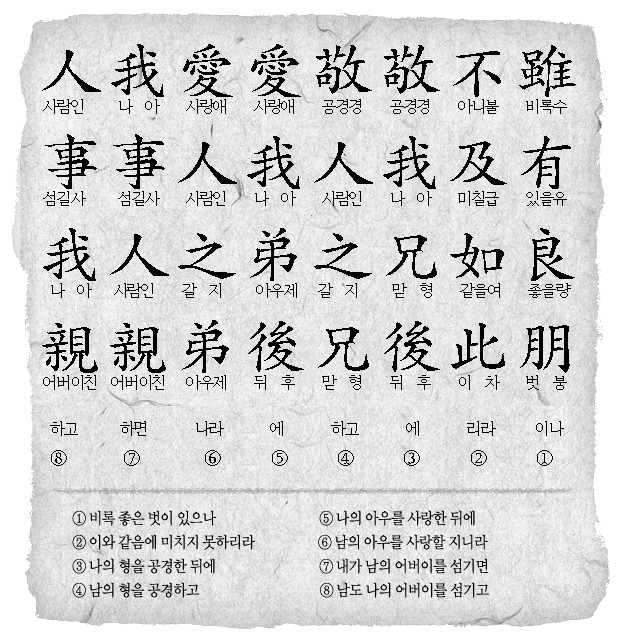 雖 비록수 有 있을유 良 좋을량 朋 벗 붕 이나 ①
不 아니불 及 미칠급 如 같을여 此 이 차 리라 ②
敬 공경경 我 나 아 兄 맏 형 後 뒤 후 에 ③
敬 공경경 人 사람인 之 갈 지 兄 맏 형 하고 ④
愛 사랑애 我 나 아 弟 아우제 後 뒤 후 에 ⑤
愛 사랑애 人 사람인 之 갈 지 弟 아우제 나라 ⑥
我 나 아 事 섬길사 人 사람인 親 어버이친 하면 ⑦
人 사람인 事 섬길사 我 나 아 親 어버이친 하고 ⑧
① 비록 좋은 벗이 있으나
② 이와 같음에 미치지 못하리라
③ 나의 형을 공경한 뒤에
④ 남의 형을 공경하고
⑤ 나의 아우를 사랑한 뒤에
⑥ 남의 아우를 사랑할 지니라
⑦ 내가 남의 어버이를 섬기면
⑧ 남도 나의 어버이를 섬기고